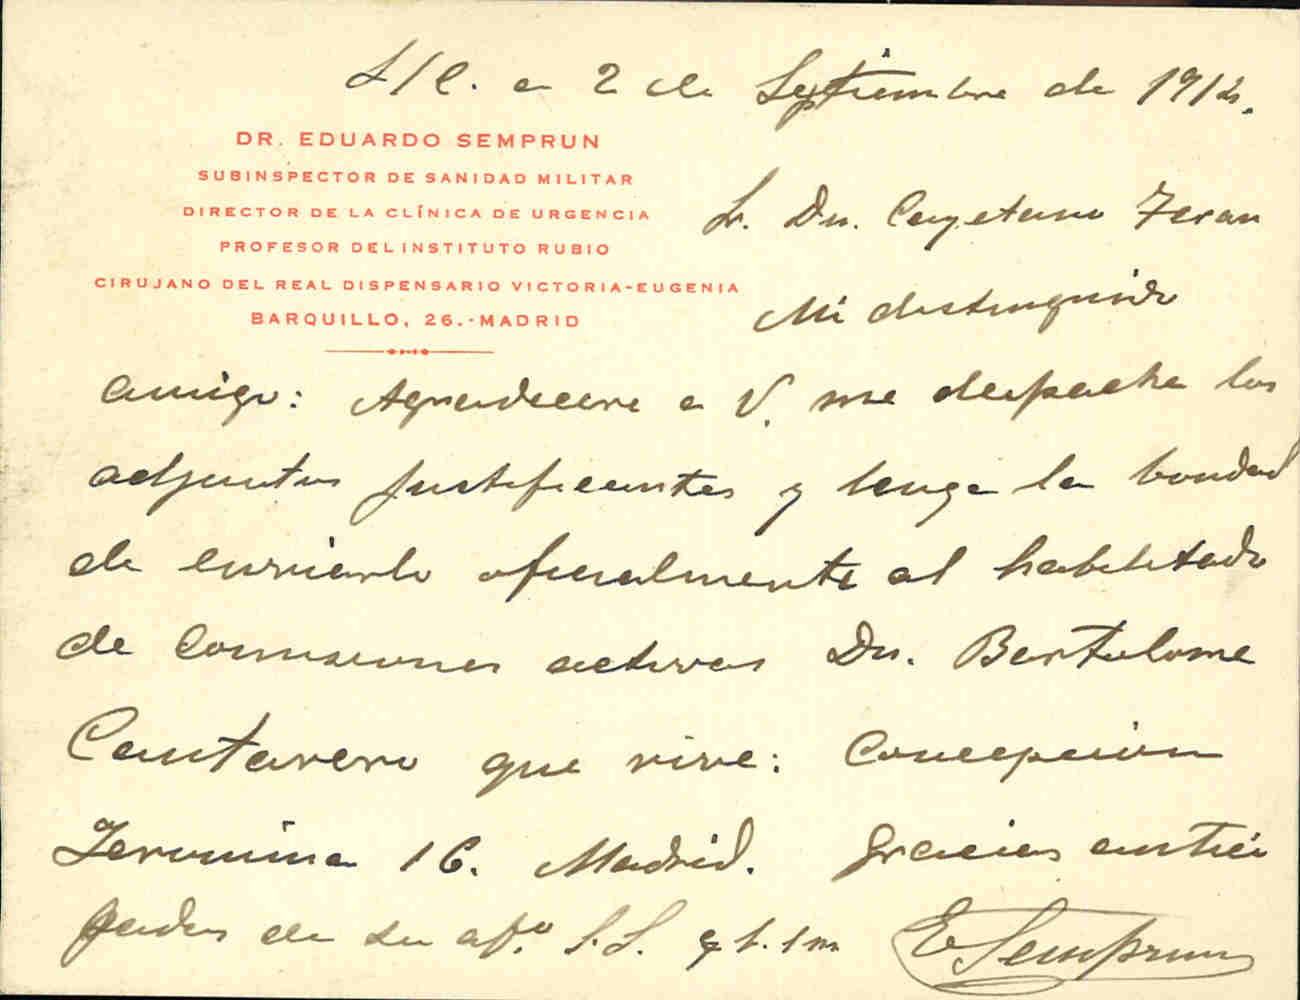 S/C. a 2 de Septiembre de 1912.
DR. EDUARDO SEMPRUN
SUBINSPECTOR DE SANIDAD MILITAR
DIRECTOR DE LA CLÍNICA DE URGENCIA
PROFESOR DEL INSTITUTO RUBIO
CIRUJANO DEL REAL DISPENSARIO VICTORIA-EUGENIA
BARQUILLO, 26.-MADRID
Sr. Dn. Cayetano Teran
Mi distinguido
amigo: Agradecere a V. me despache los
adjuntos justificantes y tenga la bondad
de enviarlo oficialmente al habilitado
de Comisiones activas Dn. Bartolome
Cantarero que vive: Concepcion
Jeronima 16. Madrid. Gracias antici
padas de su afº. S.S. q b. s m
E Semprun